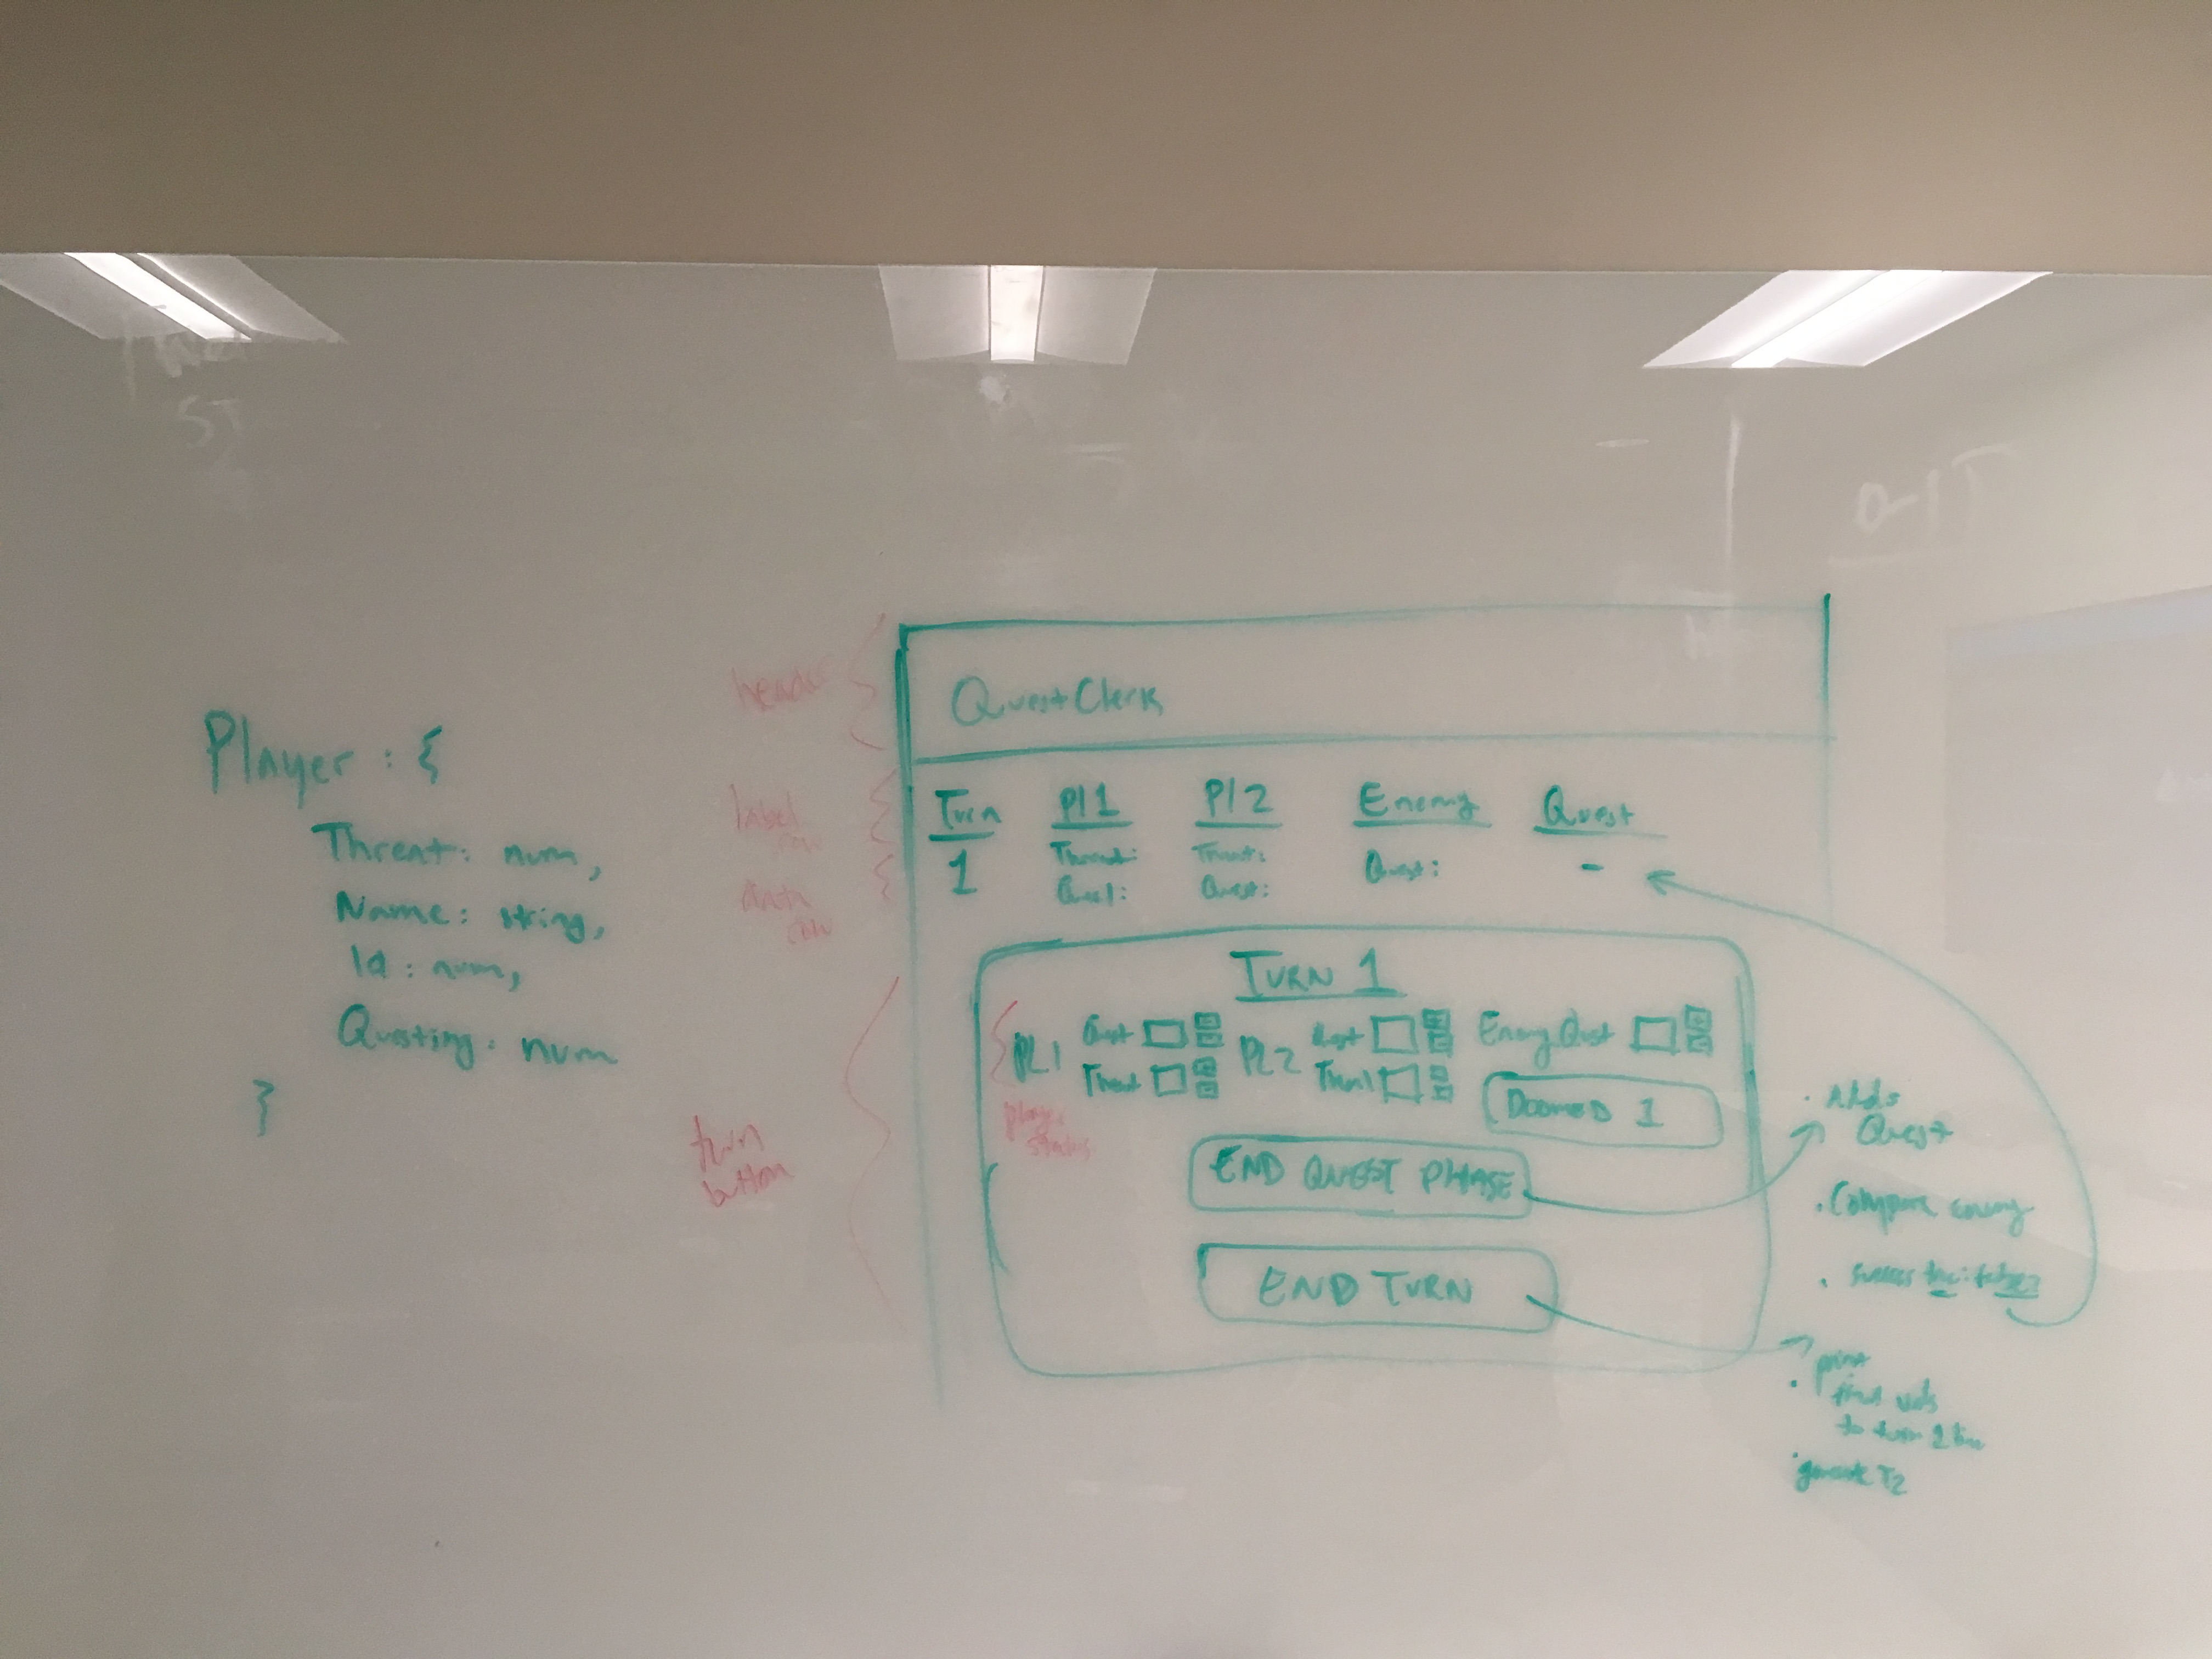 Player : {
Threat: num,
Name: string,
Id : num,
Questing: num
}
header
label row
data row
turn button
QuestClerk
Turn Pl1 Pl2 Enemy Quest
1 Threat: Threat: Quest: -
Quest: Quest:
TURN 1
PL1 Quest PL2 Quest Enemy Quest
Threat Threat
player status
DOOMED 1
END QUEST PHASE
END TURN
· Adds Quest
· Compare enemy
· success
· print
to turn 1
· generate T2